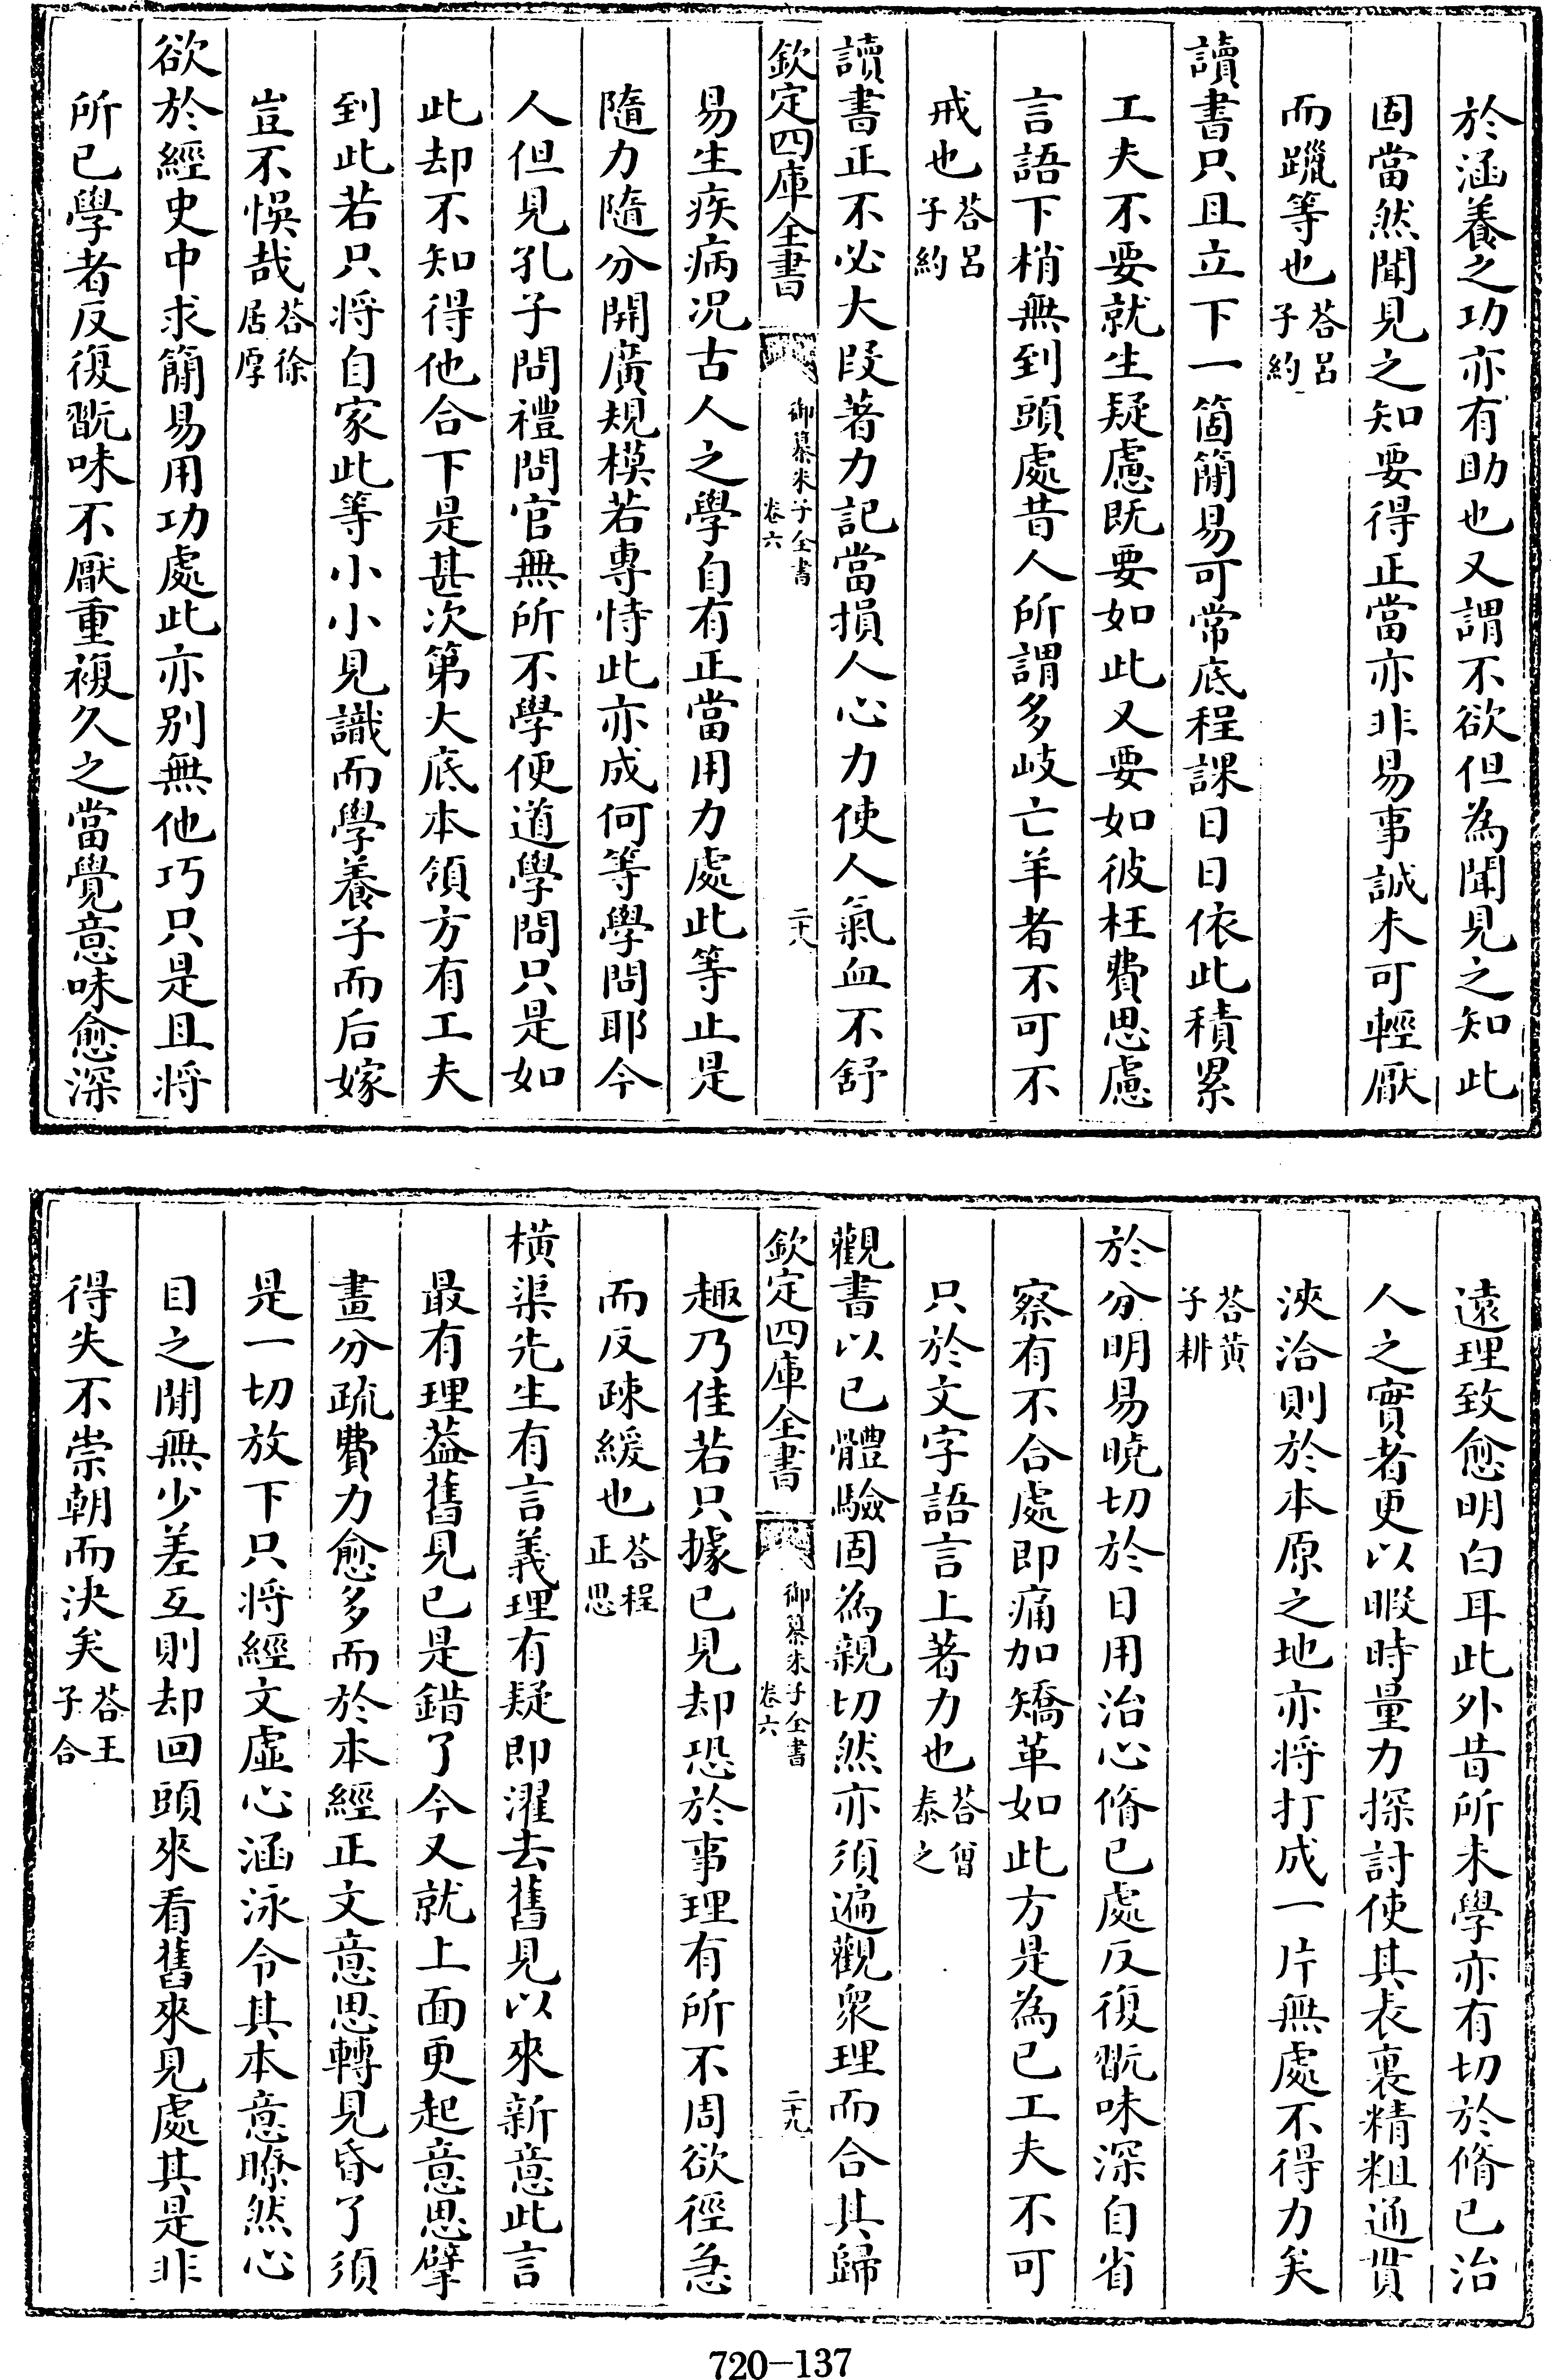 於涵養之功亦有助也又謂不欲但為聞見之知此
固當然聞見之知要得正當亦非易事誠未可輕厭
而躐等也答呂子約
讀書只且立下一箇簡易可常底程課日日依此積累
工夫不要就生疑慮既要如此又要如彼枉費思慮
言語下梢無到頭處昔人所謂多岐亡羊者不可不
戒也答呂子約
讀書正不必大段著力記當損人心力使人氣血不舒
欽定四庫全書 御纂朱子全書卷六 二十八
易生疾病况古人之學自有正當用力處此等止是
隨力隨分開廣規模若專恃此亦成何等學問耶今
人但見孔子問禮問官無所不學便道學問只是如
此却不知得他合下是甚次第大底本領方有工夫
到此若只將自家此等小小見識而學養子而后嫁
豈不悞哉答徐居厚
欲於經史中求簡易用功處此亦别無他巧只是且將
所已學者反復翫味不厭重複久之當覺意味愈深
遠理致愈明白耳此外昔所未學亦有切於脩已治
人之實者更以暇時量力探討使其表裏精粗通貫
浹洽則於本原之地亦將打成一片無處不得力矣
答黄子耕
於分明易曉切於日用治心脩已處反復翫味深自省
察有不合處即痛加矯革如此方是為已工夫不可
只於文字語言上著力也答曾泰之
觀書以已體驗固為親切然亦須遍觀衆理而合其歸
欽定四庫全書 御纂朱子全書卷六 二十九
趣乃佳若只據已見却恐於事理有所不周欲徑急
而反疎緩也答程正思
橫渠先生有言義理有疑即濯去舊見以來新意此言
最有理葢舊見已是錯了今又就上面更起意思擘
畫分疏費力愈多而於本經正文意思轉見昏了須
是一切放下只將經文虛心涵泳令其本意瞭然心
目之間無少差互則却回頭來看舊來見處其是非
得失不崇朝而決矣答王子合
720-137